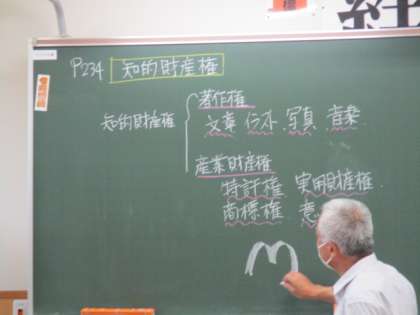 P234 知的財産権
知的財産権
著作権
文章 イラスト 写真 音楽
産業財産権
特許権 実用財産権
商標権 意
M